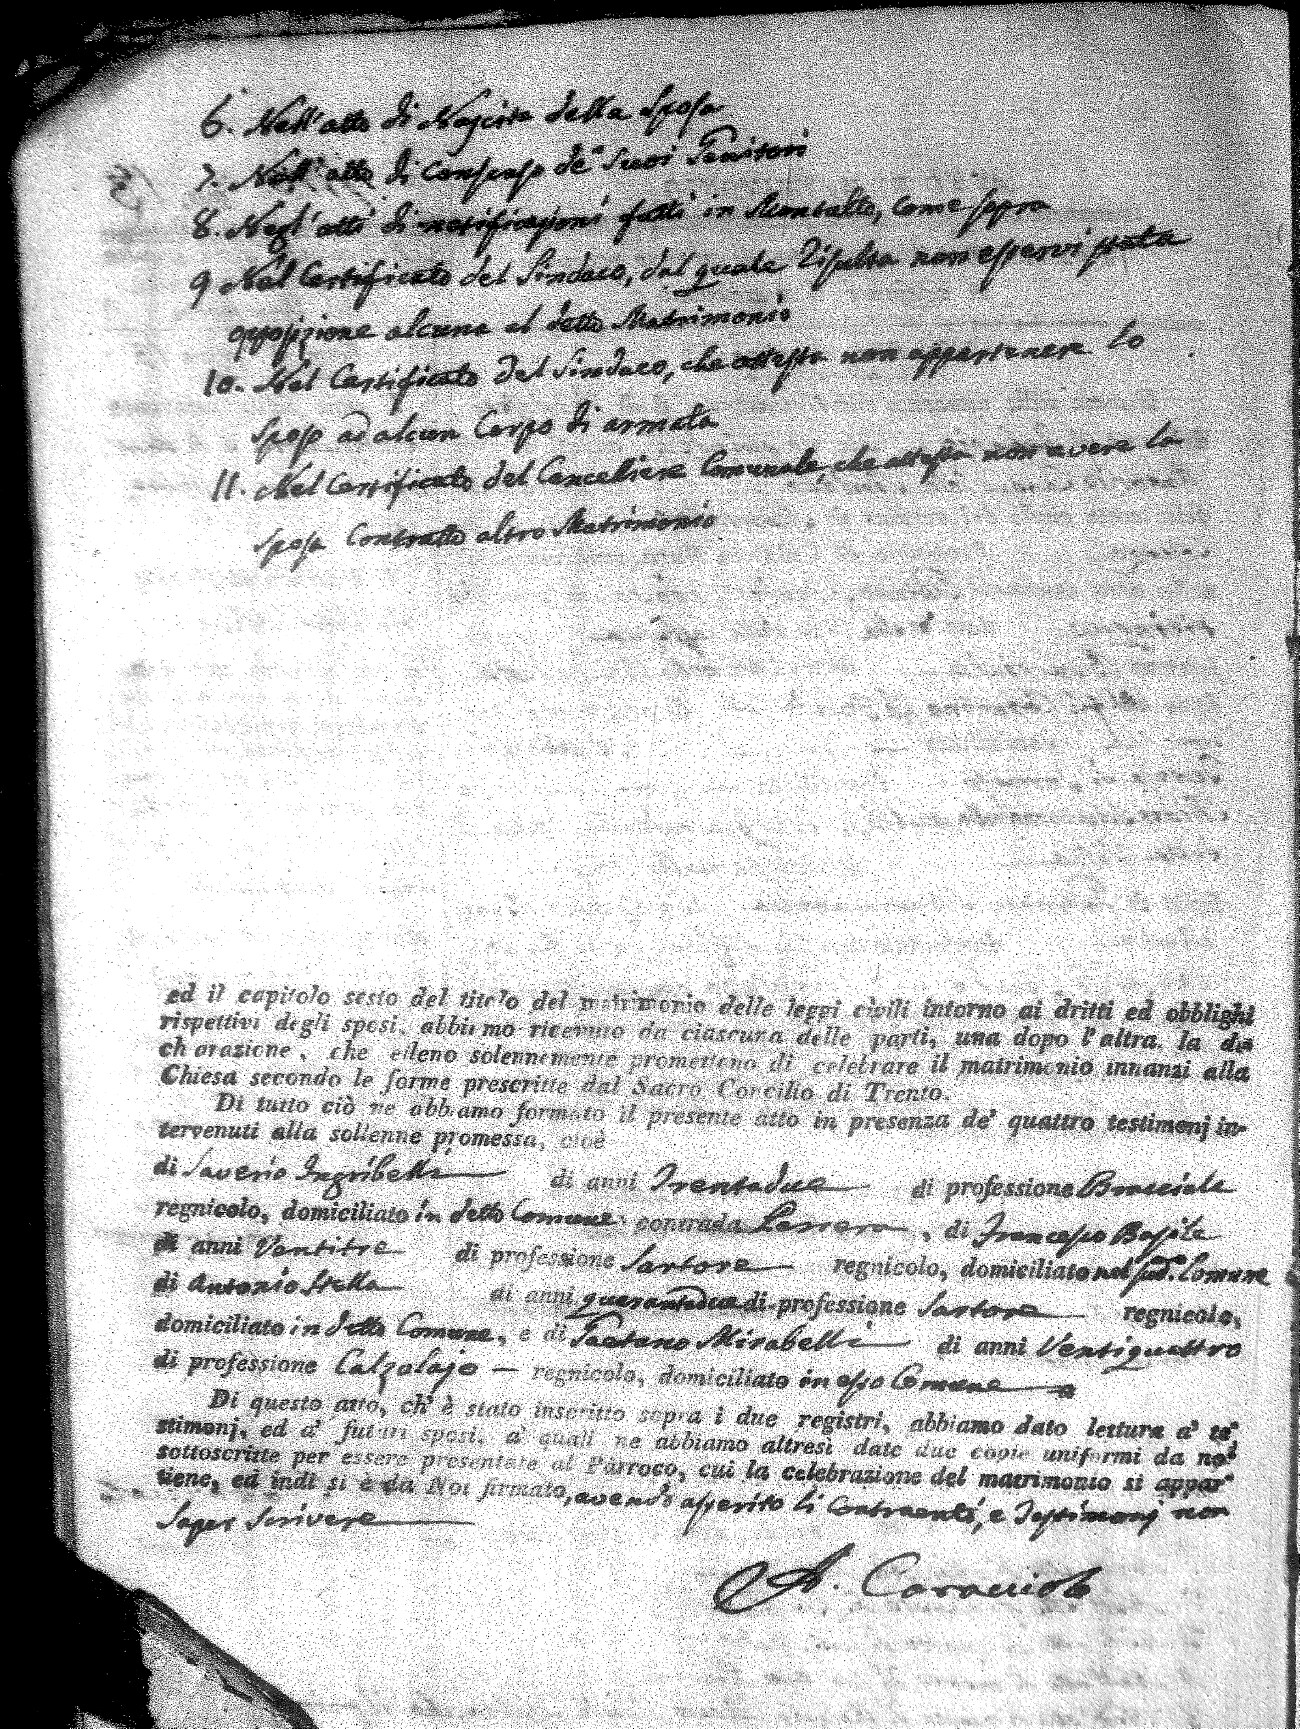 6. Nell'atto di Nascita della Sposa
7. Nell'atto di Consenso de' Suoi Genitori
8. Negl'atti di notificazioni fatti in Montalto, come sopra
9 Nel Certificato del Sindaco, dal quale risulta non esservi stata
opposizione alcuna al detto Matrimonio
10. Nel Certificato del Sindaco, che attesta non appartenere lo
Sposo ad alcun Corpo di armata
11. Nel Certificato del Cancelliere Comunale, che attesta non avere la
Sposa Contratto altro Matrimonio
ed il capitolo sesto del titolo del matrimonio delle leggi civili intorno ai dritti ed obblighi
rispettivi degli sposi, abbiamo ricevuto da ciascuna delle parti, una dopo l'altra, la di-
chiarazione, che elleno solennemente promettono di celebrare il matrimonio innanzi alla
Chiesa secondo le forme prescritte dal Sacro Concilio di Trento.
Di tutto ciò ne abbiamo formato il presente atto in presenza de' quattro testimonj in-
tervenuti alla sollenne promessa, cioè
di Saverio Ingribelli di anni Trentadue di professione Bracciale
regnicolo, domiciliato in detto Comune contrada , di Francesco
di anni Ventitre di professione Sartore regnicolo, domiciliato nel sud.o Comune
di Antonio Stella di anni quarantadue di professione Sartore regnicolo,
domiciliato in detto Comune, e di Gaetano Mirabelli di anni Ventiquattro
di professione Calzolajo — regnicolo, domiciliato in esso Comune
Di questo atto, ch' è stato inscritto sopra i due registri, abbiamo dato lettura a' te-
stimonj, ed a' futuri sposi, a' quali ne abbiamo altresì date due copie uniformi da noi
sottoscritte per essere presentate al Parroco, cui la celebrazione del matrimonio si appar-
tiene, ed indi si è da Noi firmato, avendo asserito li Contraenti, e Testimonj non
Saper Scrivere
A. Caracciolo